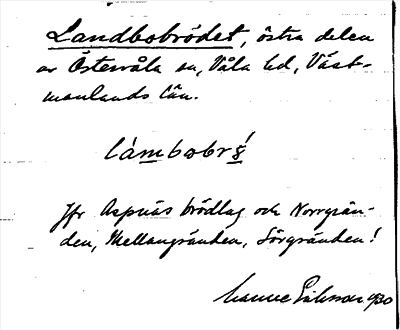 Landbobrödet, östra delen
av Östervåla sn, Våla hd, Väst-
manlands län.
Jfr Aspnäs brödlag och Norrgrän-
den, Mellangränden, Sörgränden!
Manne Eriksson 1930